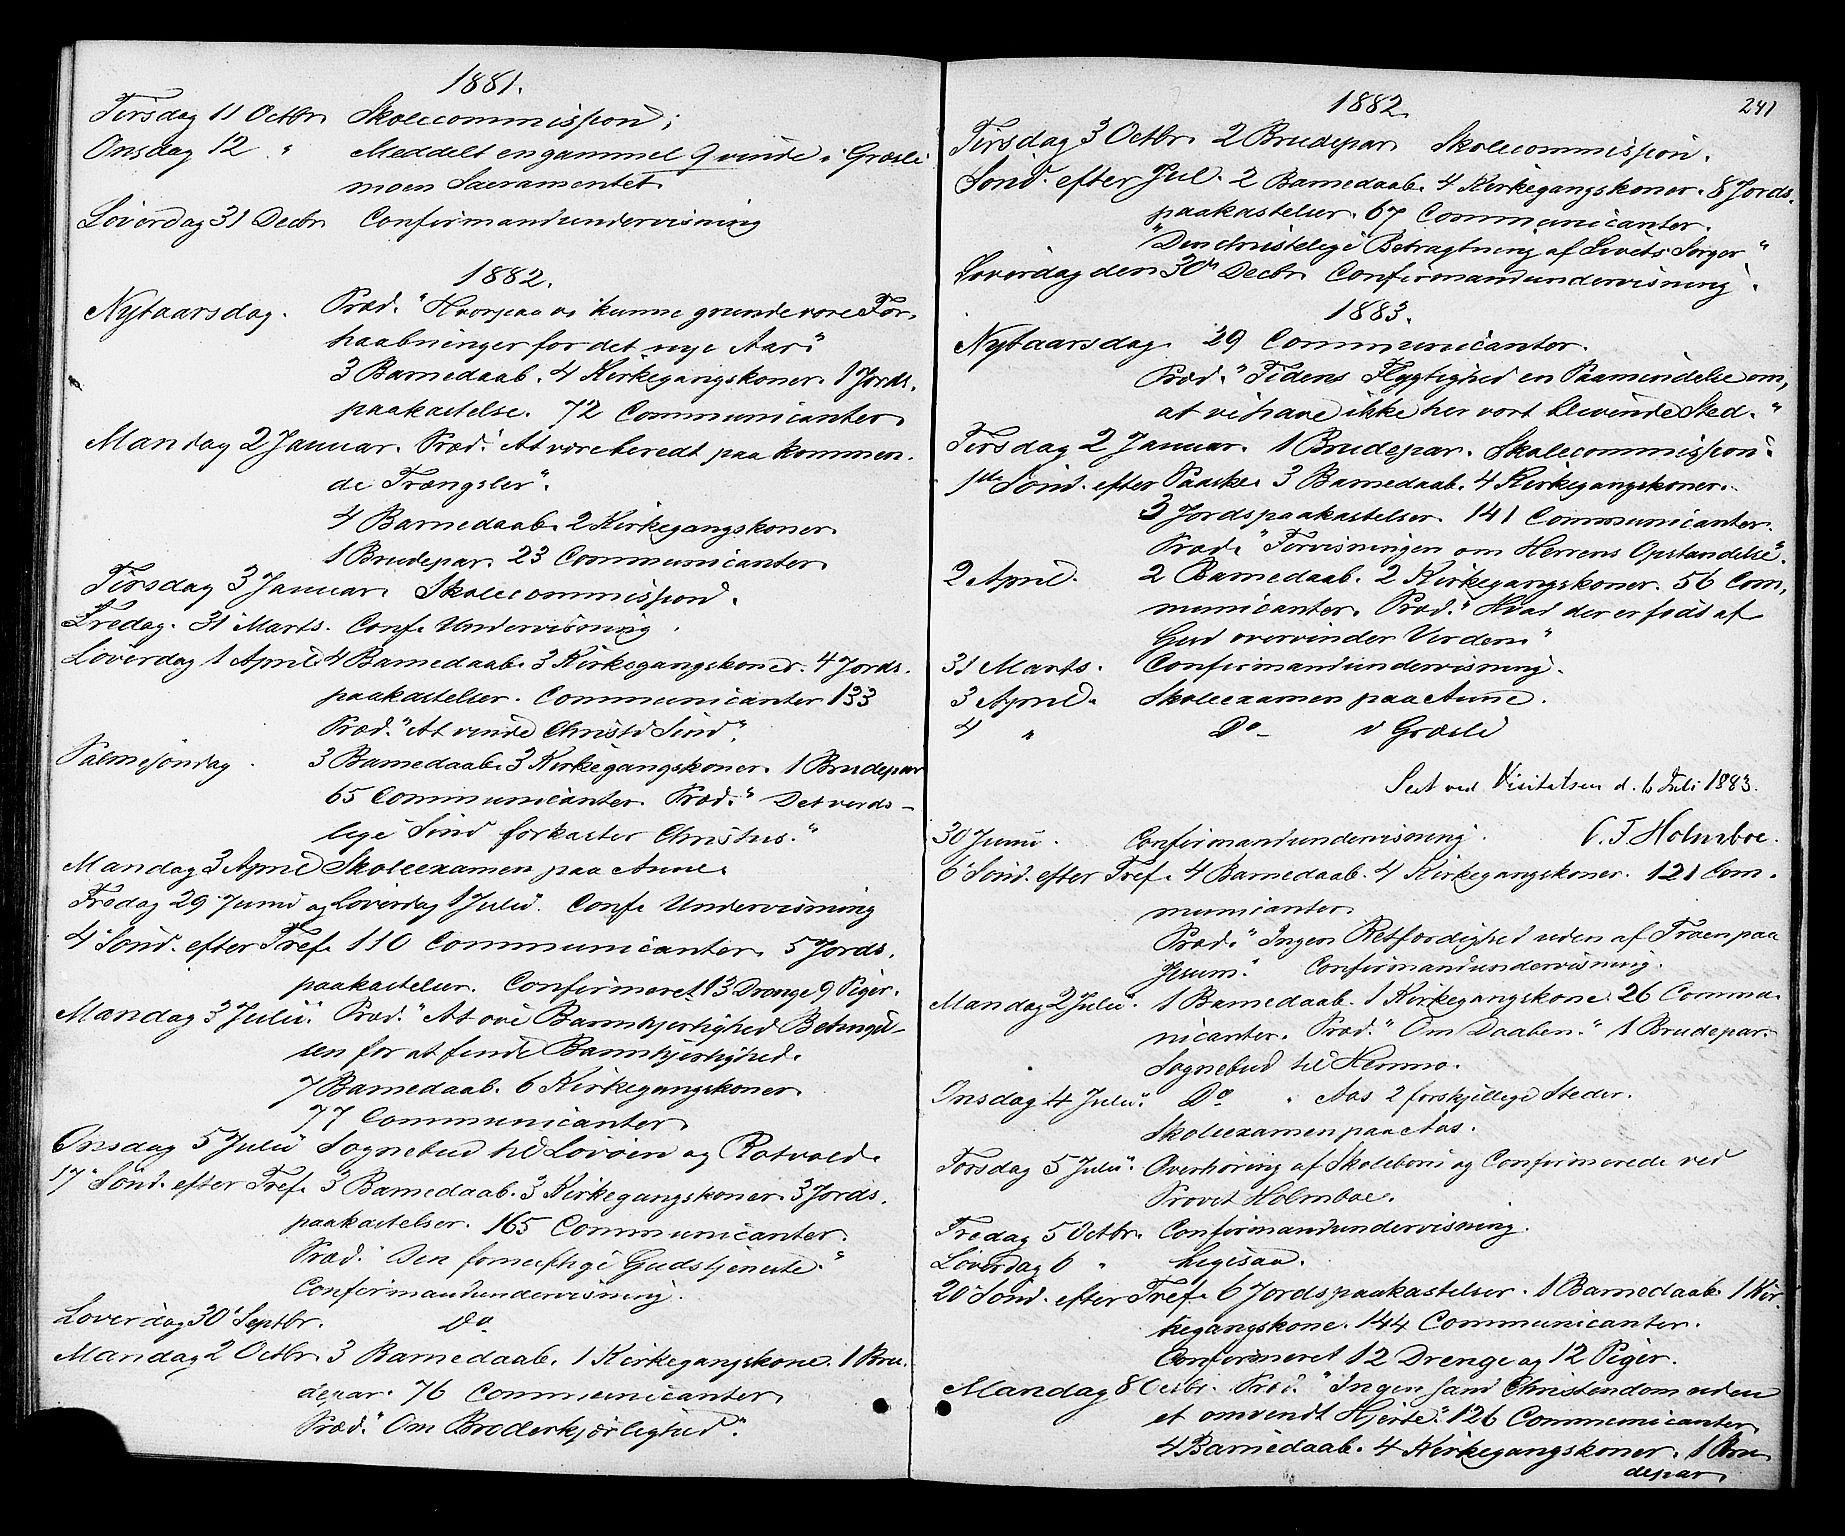 1881.
Tirsdag 11 Octbr Skolecommission;
Onsdag 12 " Meddelt en gammel Qvinde i Græsli
moen Sacramentet.
Löverdag 31 Decbr Confirmandundervisning
1882.
Nytaarsdag. Præd. "Hvorpaa vi kunne grunde vore For-
haabninger for det nye Aar"
3 Barnedaab. 4 Kirkegangskoner. 1 Jords-
paakastelse. 72 Communicanter.
Mandag 2 Januar. Præd. "At være beredt paa kommen-
de Trængsler".
4 Barnedaab. 2 Kirkegangskoner.
1 Brudepar. 23 Communicanter.
Tirsdag 3 Januar. Skolecommission.
Fredag. 31 Marts. Conf. Undervisning.
Löverdag 1 April 4 Barnedaab. 3 Kirkegangskoner. 4 Jords-
paakastelser. Communicanter 133
Præd. "At vinde Christi Sind".
Palmesöndag. 3 Barnedaab. 3 Kirkegangskoner. 1 Brudepar
65 Communicanter. Præd. "Det verds-
lige Sind forkaster Christus."
Mandag 3 April Skoleexamen paa Aune.
Fredag 29 Juni og Löverdag 1 Julii. Conf. Undervisning
4 Sönd. efter Tref. 110 Communicanter. 5 Jords-
paakastelser. Confirmeret 13 Drenge 9 Piger.
Mandag 3 Julii. Præd. "At öve Barmhjertighed Betingel-
sen for at finde Barmhjertighed.
7 Barnedaab. 6 Kirkegangskoner.
77 Communicanter.
Onsdag 5 Julii Sognebud til Lövöen og Rotvold.
17 Sönd. efter Tref. 3 Barnedaab. 3 Kirkegangskoner. 3 Jords-
paakastelser. 165 Communicanter.
Præd. "Den fornuftige Gudstjeneste."
Confirmandundervisning.
Loverdag 30 Septbr. Do
Mandag 2 Octbr. 3 Barnedaab. 1 Kirkegangskone. 1 Bru-
depar. 76 Communicanter.
Præd. "Om Broderkjærlighed".
241
1882.
Tirsdag 3 Octbr. 2 Brudepar. Skolecommission.
Sönd. efter Jul. 2 Barnedaab. 4 Kirkegangskoner. 8 Jords-
paakastelser. 67 Communicanter.
"Den christelige Betragtning af Livets Sorger"
Loverdag den 30te Decbr. Confirmandundervisning.
1883.
Nytaarsdag. 29 Communicanter.
Præd. "Tidens Flygtighed en Paamindelse om,
at vi have ikke her vort blivende Sted."
Tirsdag 2 Januar. 1 Brudepar. Skolecommission.
1ste Sönd. efter Paaske 3 Barnedaab. 4 Kirkegangskoner.
3 Jordspaakastelser. 141 Communicanter.
Præd. "Forvisningen om Herrens Opstandelse".
2 April. 2 Barnedaab. 2 Kirkegangskoner. 56 Com-
municanter. Præd. "Hvad der er födt af
Gud overvinder Verden."
31 Marts. Confirmandundervisning.
3 April. Skoleexamen paa Aune.
4 " Do i Græsli
Seet ved Visitatsen d. 6 Juli 1883.
30 Junii. Confirmandundervisning. C. F Holmboe.
6 Sönd. efter Tref. 4 Barnedaab. 4 Kirkegangskoner. 121 Com-
municanter.
Præd. "Ingen Retfærdighed uden af Troen paa
Jesum." Confirmandundervisning.
Mandag 2 Julii. 1 Barnedaab. 1 Kirkegangskone. 26 Commu-
nicanter. Præd. "Om Daaben." 1 Brudepar.
Sognebud til Hemmo.
Onsdag 4 Julii. Do " Aas 2 forskjellige Steder.
Skoleexamen paa Aas.
Torsdag 5 Julii. Overhöring af Skolebörn og Confirmerede ved
Provst Holmboe.
Fredag 5 Octbr. Confirmandundervisning.
Löverdag 6 " Ligesaa.
20 Sönd. efter Tref. 6 Jordspaakastelser. 1 Barnedaab. 1 Kir-
kegangskone. 144 Communicanter.
Confirmeret 12 Drenge og 12 Piger.
Mandag 8 Octbr. Præd. "Ingen sand Christendom uden
et omvendt Hjerte". 126 Communicanter.
4 Barnedaab. 4 Kirkegangskoner. 1 Bru
depar.